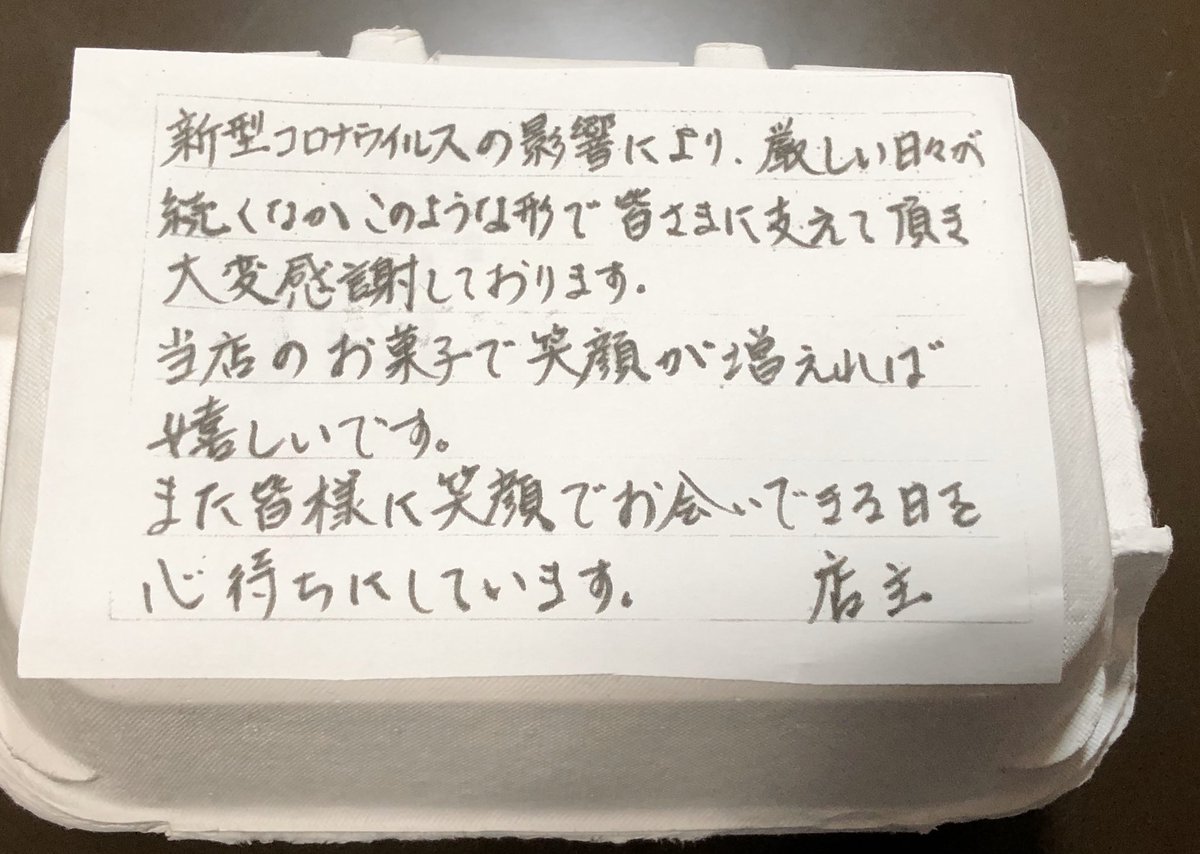 新型コロナウイルスの影響により、厳しい日々が
続くなか、このような形で皆さまに支えて頂き
大変感謝しております。
当店のお菓子で笑顔が増えれば
嬉しいです。
また皆様に笑顔でお会いできる日を
心待ちにしています。 店主